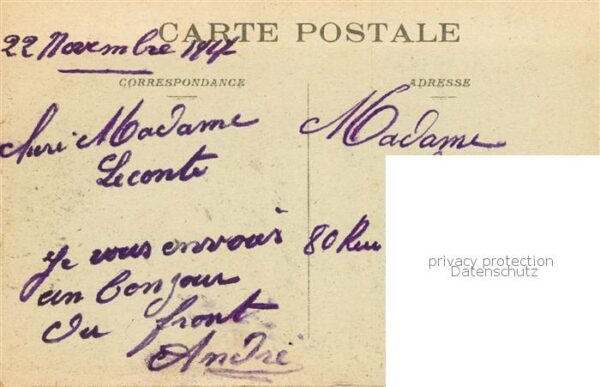 CARTE POSTALE
22 Novembre
CORRESPONDANCE
ADRESSE
Madame
Leconte
Madame
je vous envoois
un bonjour
du front
André
80 Rue
privacy protection
Datenschutz